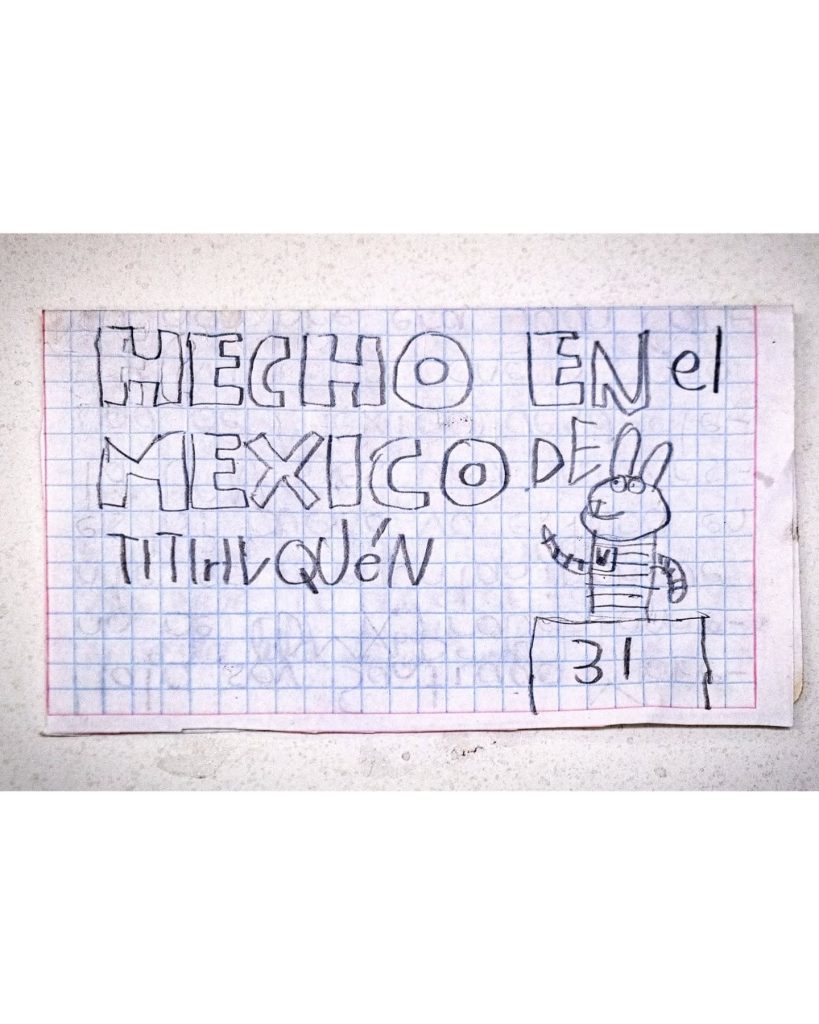 HECHO EN el
MEXICO DE
31